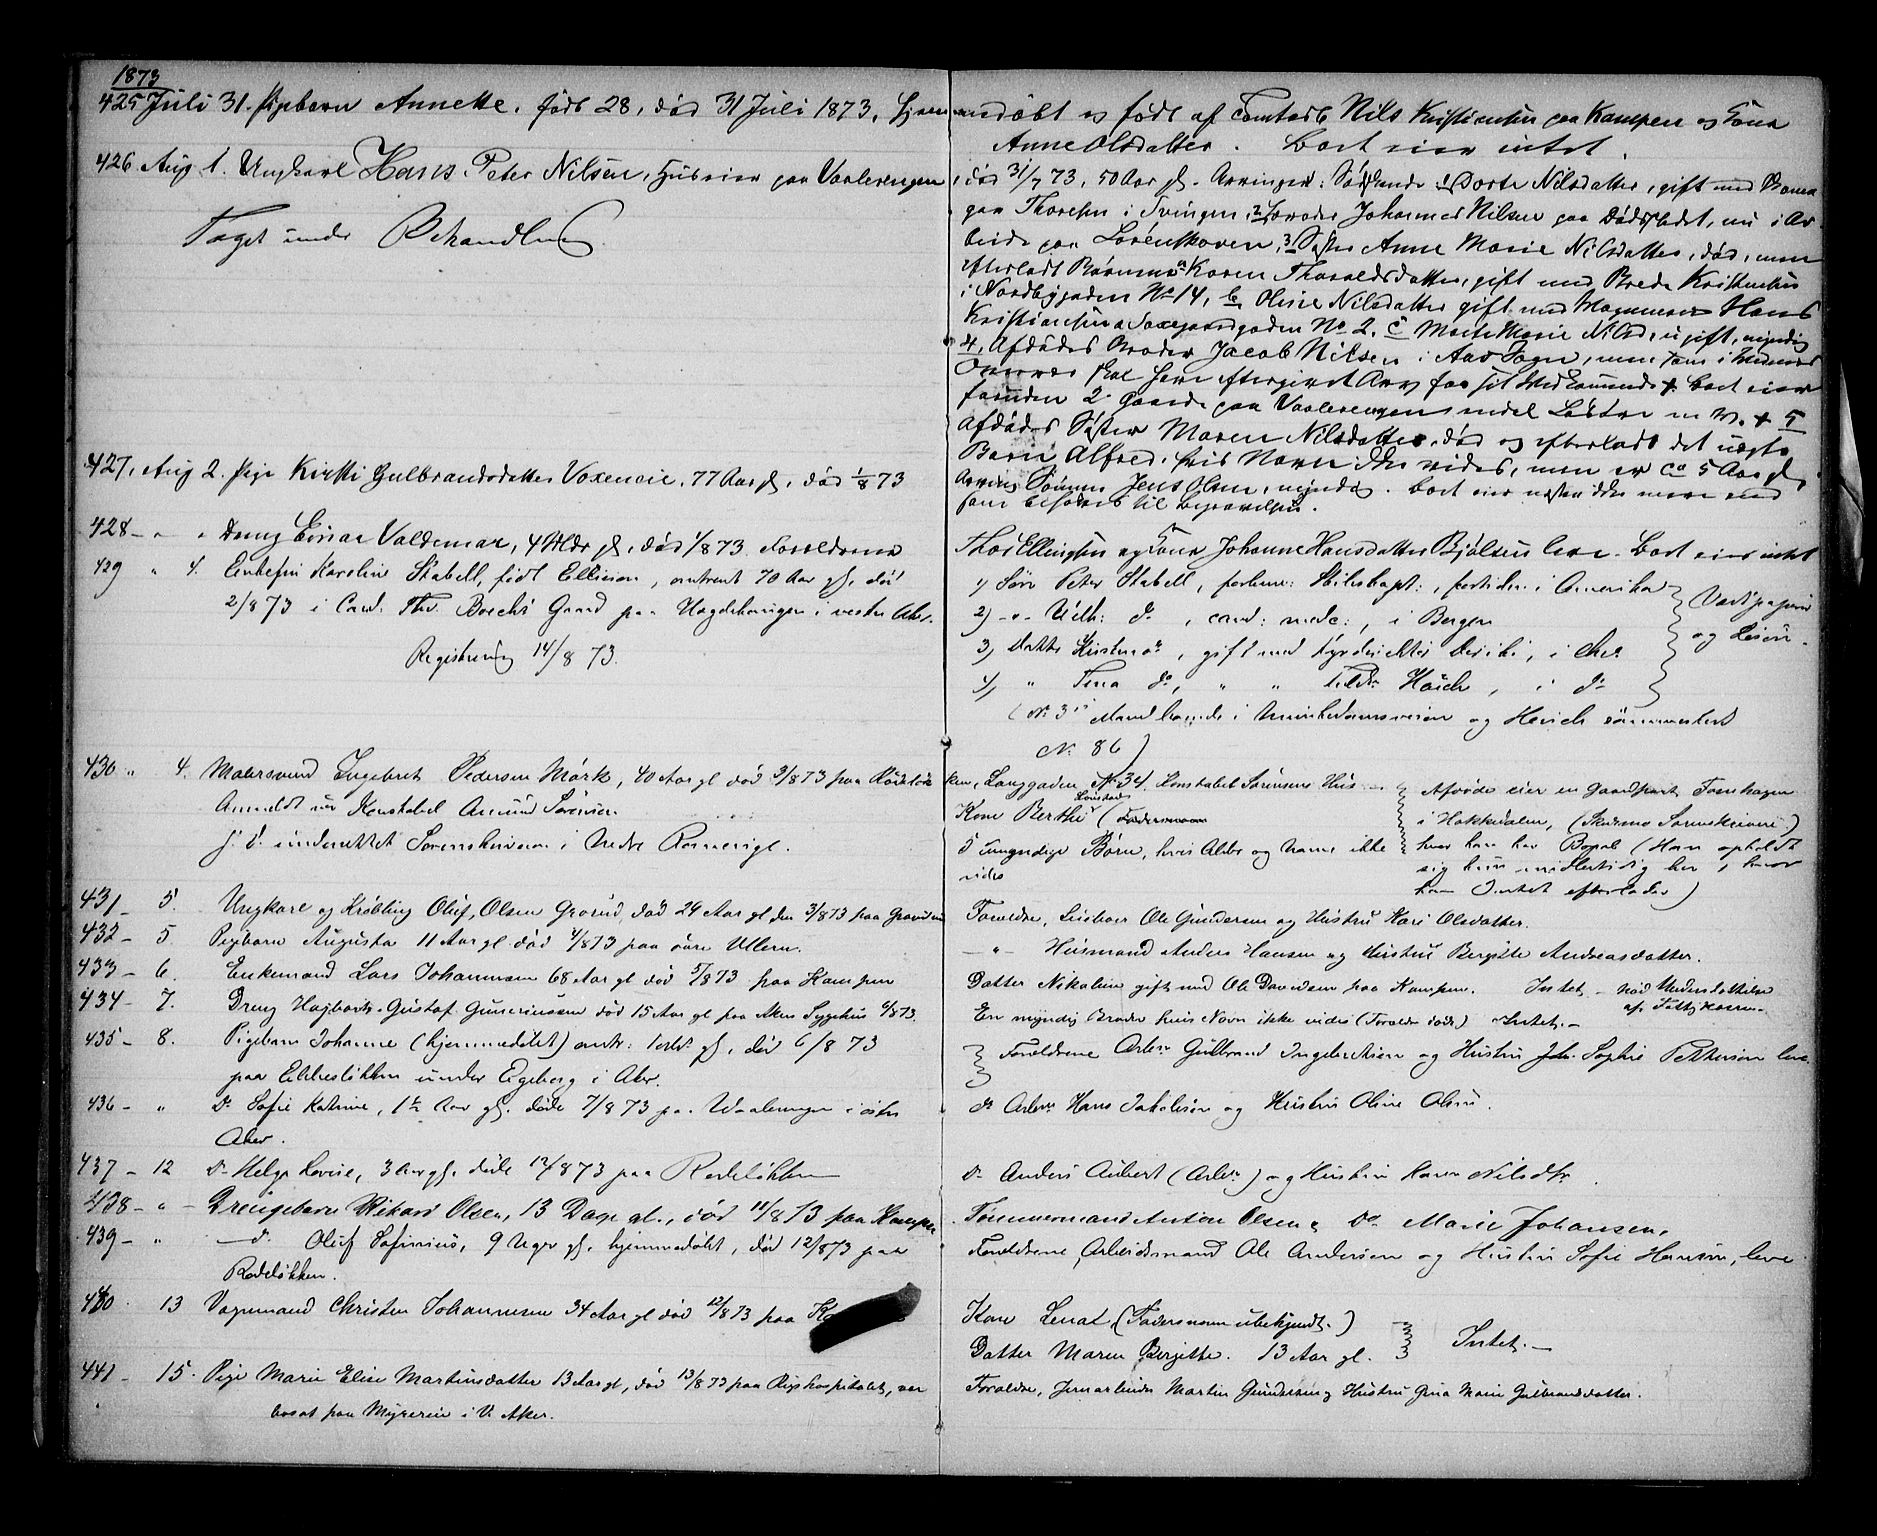 1873
425 Juli 31. Pigebarn Annette, født 28, død 31 Juli 1873, hjemmedøbt og født af Nils Kristiansen paa Kampen og Kone
Anne Olsdatter. Boet eier intet.
426. Aug 1. Ungkarl Hans Peter Nilsen, Huseier paa Vaalerengen, død 31/7 73, 50 Aar gl. Arvinger: Søskende 1) Dorte Nilsdatter, gift med
Taget under Behandling
paa i 2 Broder Johannes Nilsen paa Dødsstedet, nu i Ar-
beide paa Lørenskoven, 3 Søster Anne Marie Nilsdatter, død, men
efterladt Børnene a Karen Thoraldsdatter, gift med Brede Kristiansen
i Nordbygaden No 14, b Oline Nilsdatter gift med Vognmand Hans
Kristiansen Saxegaardgaden No 2, c Marte Marie Nilsd, ugift, myndig
4, Afdødes Broder Jacob Nilsen i Aas Sogn, men som i
skal have Arv for sit Boet eier
foruden 2 Gaarde paa Vaalerengen endel Løsøre m. V. + 5
Afdødes Søster Maren Nilsdatter, død og efterladt det uægte
Barn Alfred, hvis Navn ikke vides, men er ca 5 Aar gl.
427, Aug 2. Pige Kirsti Gulbrandsdatter Voxeneie, 77 Aar gl, død 1/8 73
Arving Sønnen Jens Olsen, myndig. Boet eier næsten ikke mere end
som behøves til Begravelsen.
428 - " " Dreng Einar Valdemar, 4 Mdr gl, død 1/8 73. Forældrene Thor Ellingsen og Kone Johanne Hansdatter Bjølsen lever. Boet eier intet
429 " 4. Enkefru Karoline Stabell, født Ellieson, omtrent 70 Aar gl., død
2/8 73 i Cand. Thv. Boecks Gaard paa Hægdehaugen i vestre Aker.
Registrering 14/8 73.
1) Søn Peter Stabell, forhen: Skibskapt:, fortiden i Amerika
2) -"- Vilh: do, cand: med:, i Bergen
3) Datter , gift med , i Aker
4) " Tina do, " " , i do
Værdipapirer
og Løsøre.
(No 3s Mand boende i Munkedamsveien og
No 86)
430 " 4. Malersvend Ingebret Pedersen Mørk, 40 Aar gl død 3/8 73 paa Rodeløkken, Langgaden No 34, Konstabel Sørensens Hus
Anmeldt af Konstabel Amund Sørensen
S. D. underrettet Sorenskriveren i Nedre Romerige.
Kone Berthe (Fadersnavn
5 umyndige Børn, hvis Alder og Navne ikke
vides
Afdøde eier en Gaardpart Tvenhagen
i Hakkedalen, (Skedsmo Sorenskriveri)
hvor han har Bopæl (Han opholdt
sig kun midlertidig her, hvor
han Intet efterlader)
431 - 5. Ungkarl og Krøbling Oluf Olsen Grorud, død 29 Aar gl, den 3/8 73 paa Grorud
Forældre, Ole Gundersen og Hustru Kari Olsdatter.
432 - 5. Pigebarn Augusta 11 Aar gl død 4/8 73 paa øvre Ullern.
-"- Husmand Anders Hansen og Hustru Bergitte Andreasdatter.
433 - 6. Enkemand Lars Johannesen 68 Aar gl død 5/8 73 paa Kampen
Datter Nikoline gift med Ole Davidsen paa Kampen. Intet - nød Understøttelse
af Fattigkassen.
434 - 7. Dreng Hagbarth Gustaf Guneriussen død 15 Aar gl paa Akers Sygehus 6/8 73.
En myndig Broder hvis Navn ikke vides (Forældre døde) Intet. -
435 - 8. Pigebarn Johanne (hjemmedøbt) omtr: gl, død 6/8 73
paa Ekkeløkken under Egeberg i Aker.
Forældrene Arbm Gulbrand Ingebretsen og Hustru Joh. Sophie Pettersen leve
436 - " Do Sofie Katrine, 1 1/2 Aar gl. døde 7/8 73 paa Vaalerengen i østre
Aker.
do Arbm Hans Jakobsen og Hustru Oline Olsen.
437 - 12 Do Helga Lovise, 3 Aar gl. døde 12/8 73 paa Rodeløkken
Do Anders Aubert (Arbm) og Hustru Karen Nilsdtr.
438 - " - Drengebarn Rikard Olsen, 13 Dage gl., død 11/8 73 paa Kampen.
Tømmermand Anton Olsen & Do Marie Johansen.
439 - " - d. Oluf Sofinius, 9 Uger gl. hjemmedøbt, død 12/873 paa
Rodeløkken.
Forældrene Arbeidsmand Ole Andersen og Hustru Sofie Hansen, leve
440 - 13 Vognmand Christen Johannesen 34 Aar gl død 12/8 73 paa
Kone Lena (Fadersnavn ubekjendt.)
Datter Maren Bergitte. 13 Aar gl.
Intet. -
441 - 15. Pige Marie Elise Martinsdatter 13 Aar gl, død 13/8 73 paa Rigshospitalet, var
bosat paa Myrereie i V. Aker.
Forældre, Jernarbeider Martin Gundersen og Hustru Gina Marie Gulbrandsdatter.